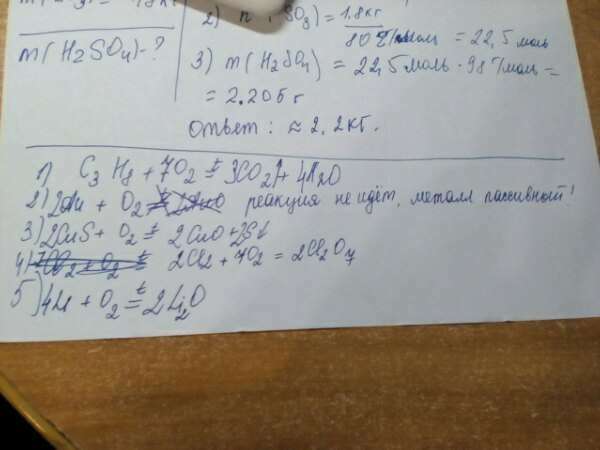 2) n(SO3) = 1,8кг / 80г/моль = 22,5 моль
m(H2SO4)-?
3) m(H2SO4) = 22,5моль · 98г/моль =
= 2.205г
ответ: ≈ 2,2кг.
1) C3H8 + 7O2 t= 3CO2↑ + 4H2O
2) + O2 реакция не идёт, металл пассивный!
3) 2CuS + O2 t= 2CuO + 2S↓
4) 2Cl2 + 7O2 = 2Cl2O7
5) 4Li + O2 t= 2Li2O